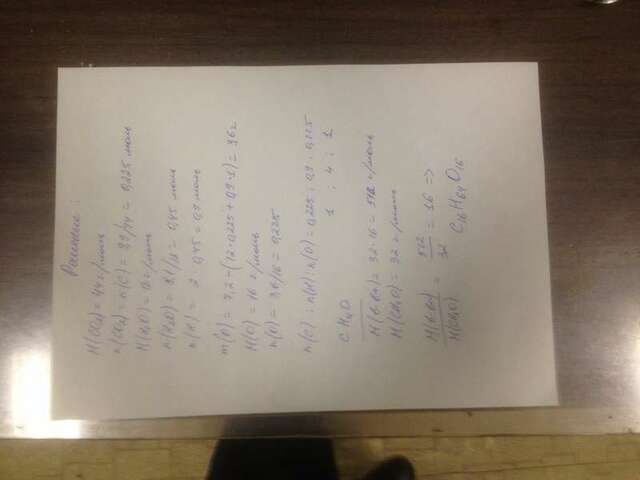 Решение:
M(CO₂) = 44 г/моль
n(CO₂) = n(C) = 9,9/44 = 0,225 моль
M(H₂O) = 18 г/моль
n(H₂O) = 8,1/18 = 0,45 моль
n(H) = 2 · 0,45 = 0,9 моль
m(O) = 7,2 - (12·0,225 + 0,9·1) = 3,6 г
M(O) = 16 г/моль
n(O) = 3,6/16 = 0,225
n(C) : n(H) : n(O) = 0,225 : 0,9 : 0,225
1 : 4 : 1
CH₄O
= 32·16 = 512 г/моль
M(CH₄O) = 32 г/моль
= 512/32 = 16 =>
M(CH₄O)
C₁₆H₆₄O₁₆